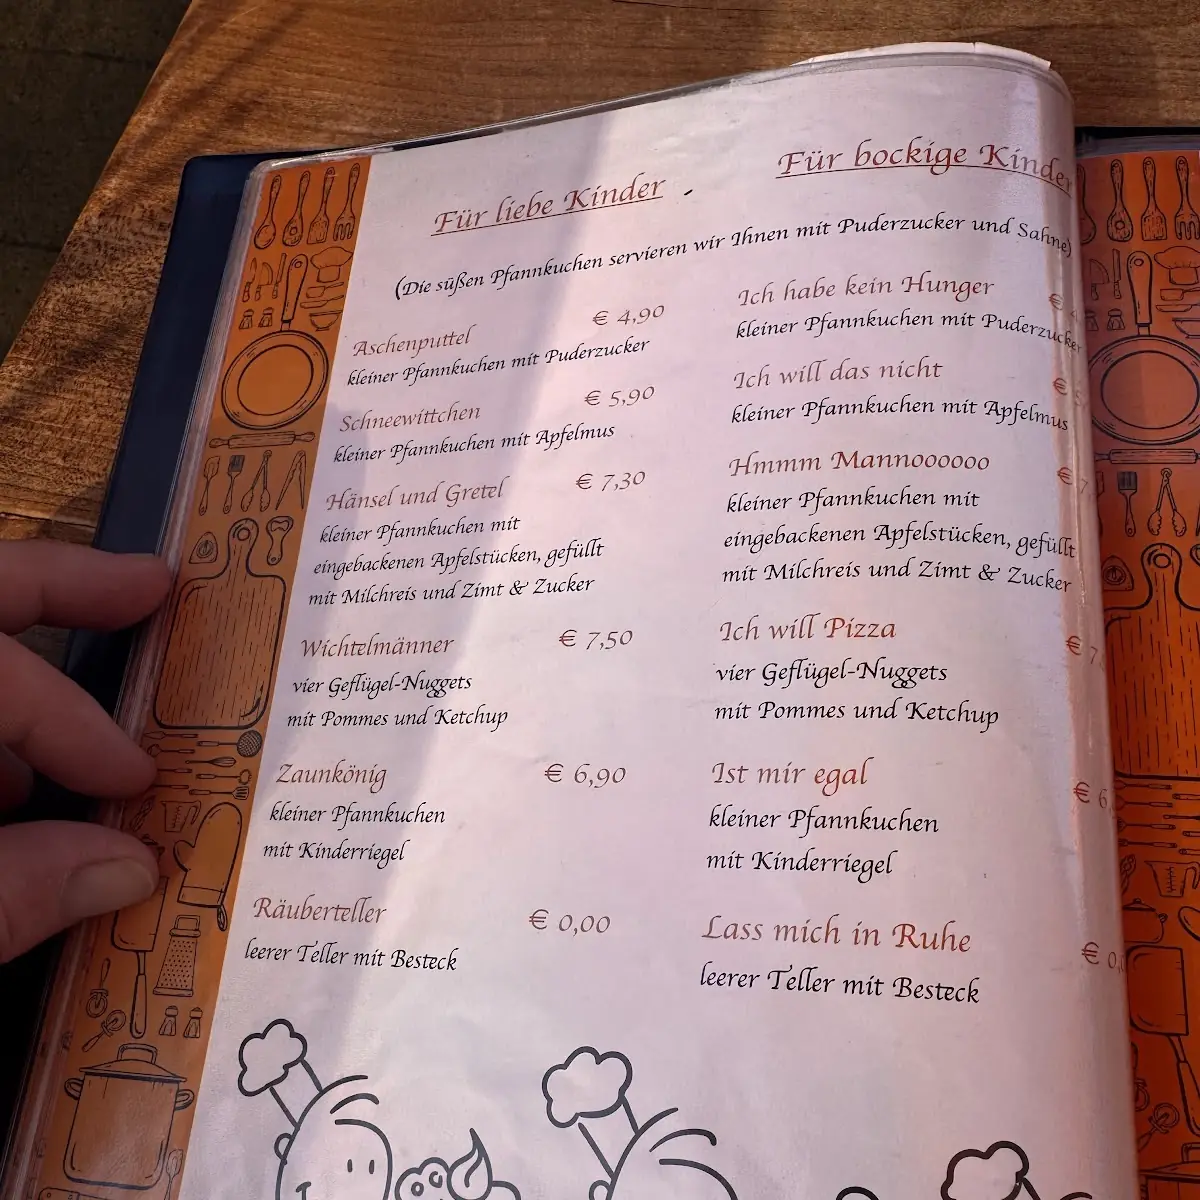 Für liebe Kinder
Für bockige Kinder
(Die süßen Pfannkuchen servieren wir Ihnen mit Puderzucker und Sahne)
Aschenputtel € 4,90
kleiner Pfannkuchen mit Puderzucker
Schneewittchen € 5,90
kleiner Pfannkuchen mit Apfelmus
Hänsel und Gretel € 7,30
kleiner Pfannkuchen mit
eingebackenen Apfelstücken, gefüllt
mit Milchreis und Zimt & Zucker
Wichtelmänner € 7,50
vier Geflügel-Nuggets
mit Pommes und Ketchup
Zaunkönig € 6,90
kleiner Pfannkuchen
mit Kinderriegel
Räuberteller € 0,00
leerer Teller mit Besteck
Ich habe kein Hunger €
kleiner Pfannkuchen mit Puderzucker
Ich will das nicht €
kleiner Pfannkuchen mit Apfelmus
Hmmm Mannoooooo €
kleiner Pfannkuchen mit
eingebackenen Apfelstücken, gefüllt
mit Milchreis und Zimt & Zucker
Ich will Pizza €
vier Geflügel-Nuggets
mit Pommes und Ketchup
Ist mir egal €
kleiner Pfannkuchen
mit Kinderriegel
Lass mich in Ruhe €
leerer Teller mit Besteck